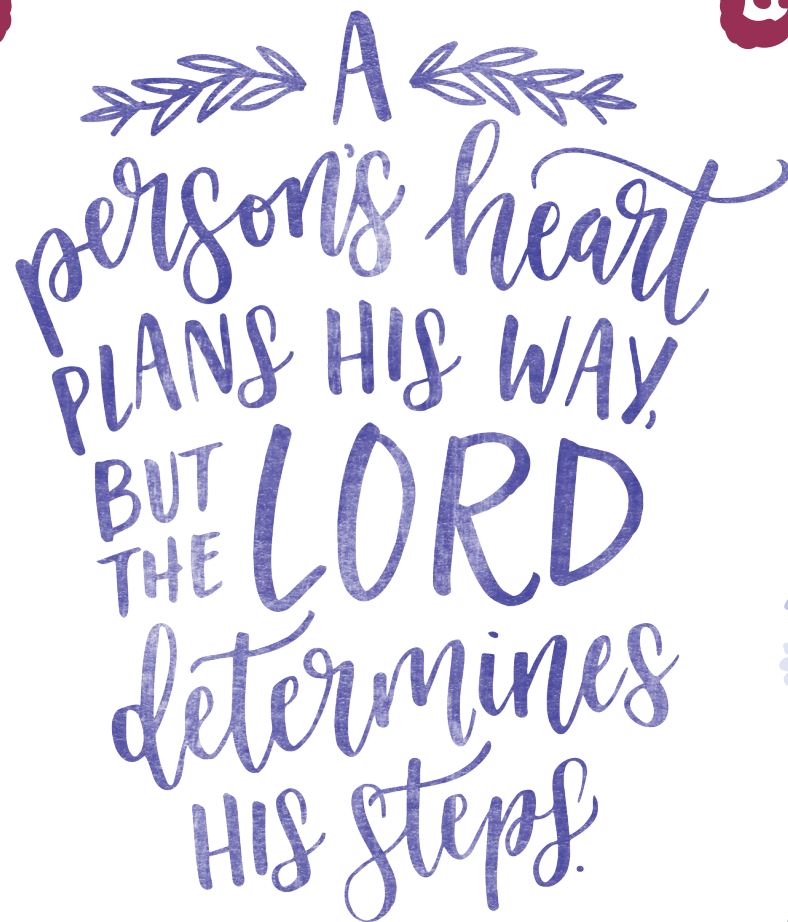 A
person's heart
PLANS HIS WAY,
BUT
THE LORD
determines
HIS steps.